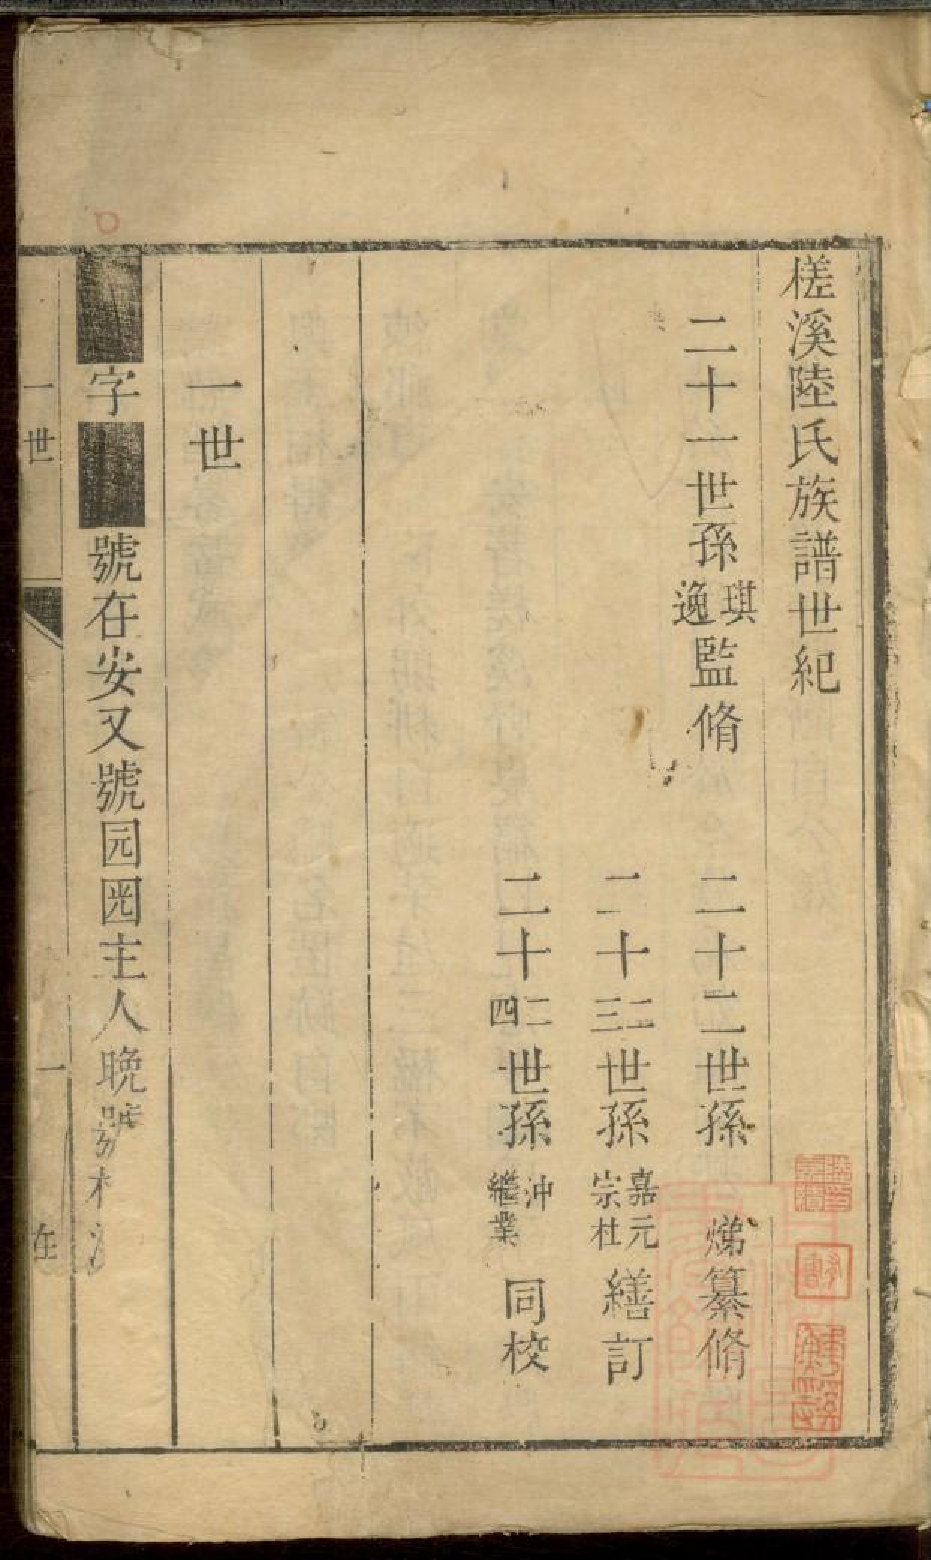 槎溪陸氏族譜世紀
二十一世孫琪逸監脩
二十二世孫焍纂脩
二十二三世孫嘉元宗杜繕訂
二十二四世孫沖繼業同校
一世
字
號在安又號园囮主人晩號
一世
一
在